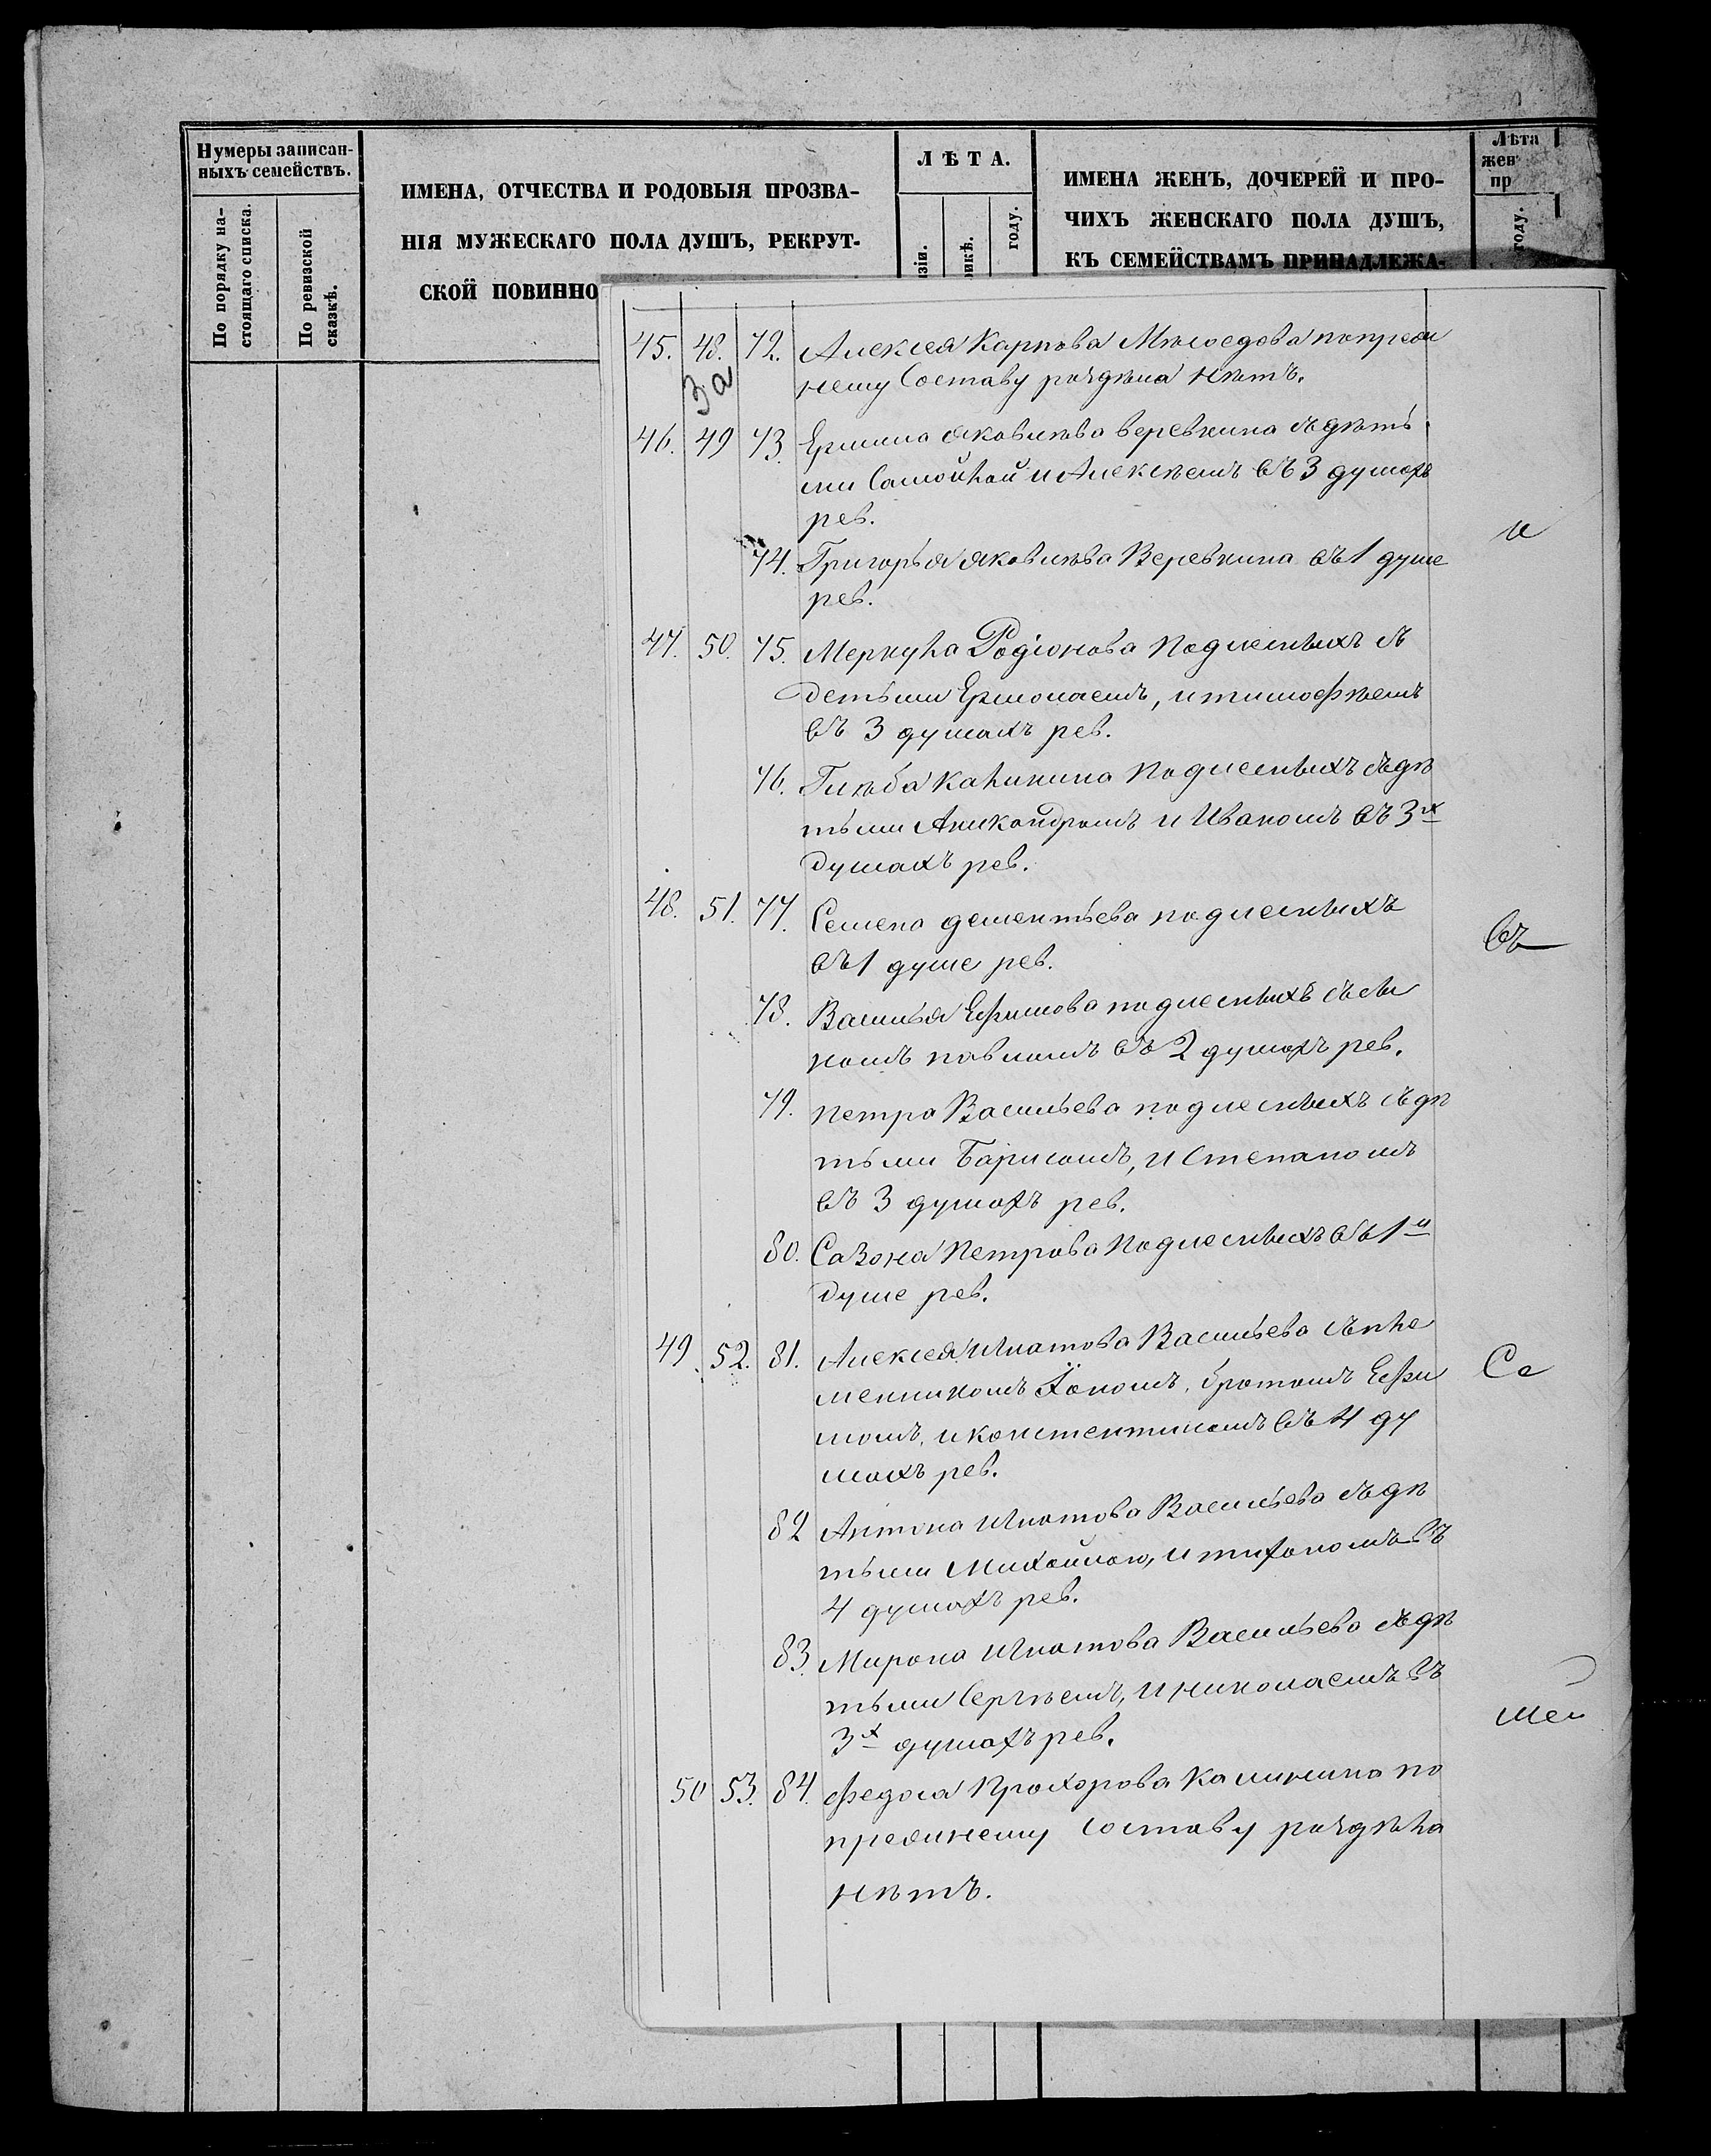 Нумеры записан-
ныхъ семействъ.
По порядку на-
стоящаго списка.
По ревизской
сказкѣ.
ИМЕНА, ОТЧЕСТВА И РОДОВЫЯ ПРОЗВА-
НІЯ МУЖЕСКАГО ПОЛА ДУШЪ, РЕКРУТ-
СКОЙ ПОВИННО
ЛѢТА.
зіи.
икѣ.
году.
ИМЕНА ЖЕНЪ, ДОЧЕРЕЙ И ПРО-
ЧИХЪ ЖЕНСКАГО ПОЛА ДУШЪ,
КЪ СЕМЕЙСТВАМЪ ПРИНАДЛЕЖА-
Лѣта
жен
пр
году.
45. 48. 72. Алексея Карпова Мясоедова попреж
нему Составу раздѣла нѣтъ.
За
46. 49 73. Ермила Яковлева Веревкина съдѣть
ми Самойлой и Алексѣемъ въ 3 душахъ
рев.
и
74. Григорья Яковлева Веревкина въ 1 душе
рев.
47. 50. 75. Меркула Родіонова Подлесныхъ съ
детьми Ермолаемъ, и тимофѣемъ
въ 3 душахъ рев.
76. Глѣба Калинина Подлесныхъ съдѣ
тьми Аникандромъ и Иваномъ въ 3х
душахъ рев.
48. 51. 77. Семена дементьева подлесныхъ
въ 1 душе рев.
въ
78. Василья Ефимова подлесныхъ съсы
номъ павломъ въ 2 душахъ рев.
79. петра Васильева подлесныхъ съдѣ
тьми Барисомъ, и Степаномъ
въ 3 душахъ рев.
80. Сазона Петрова Подлесныхъ въ 1й
душе рев.
49. 52. 81. Алексея Игнатова Васильева съпле
менникомъ братомъ Ефи
момъ, и констентиномъ въ 4 ду
шахъ рев.
Се
82 Антона Игнатова Васильева съдѣ
тьми Михайлою, и тихономъ въ
4 душахъ рев.
83. Мирона Игнатова Васильева съдѣ
тьми Сергѣемъ, и николаемъ въ
3х душахъ рев.
мей
50 53. 84. Прохорова Калинина по
прежнему составу раздѣла
нѣтъ.